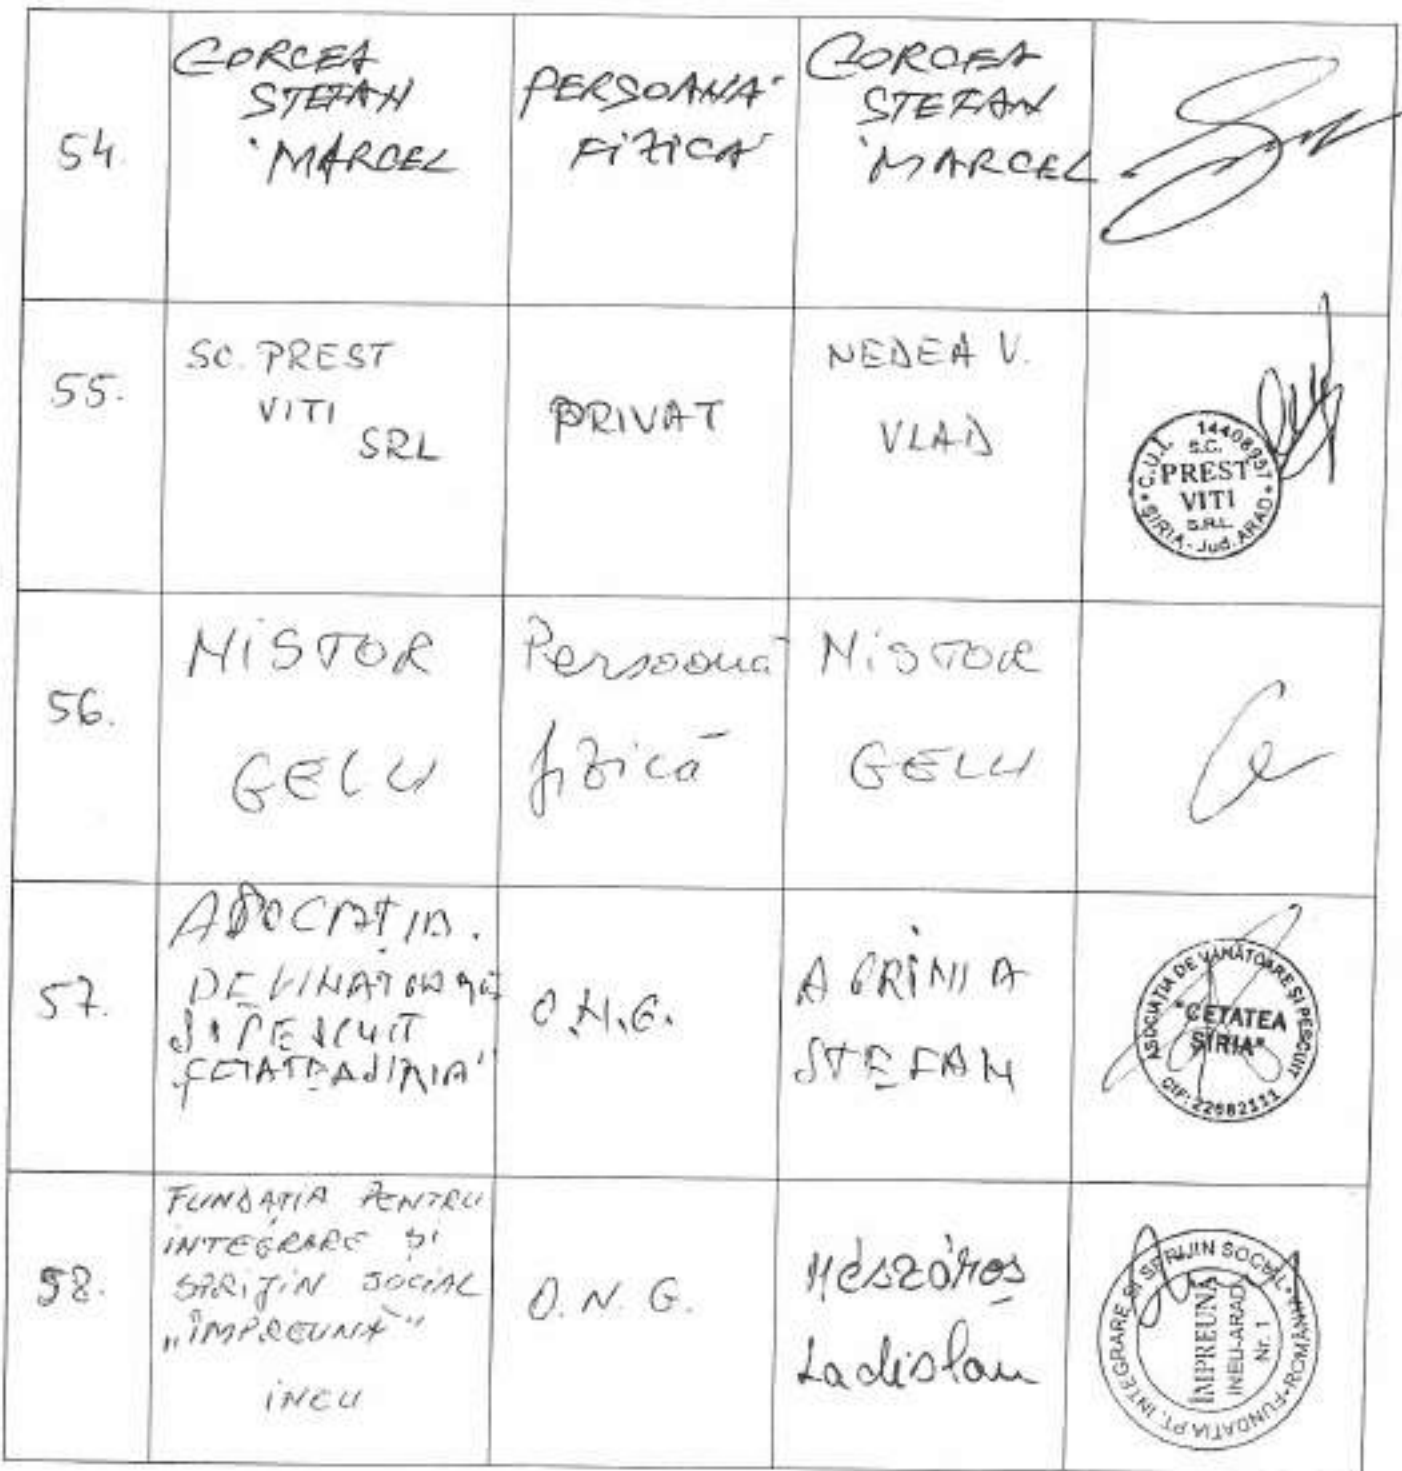 54.
CORCEA
STEFAN
MARCEL
PERSOANA
FIZICA
CORCEA
STEFAN
MARCEL
55.
SC. PREST
VITI
SRL
PRIVAT
NEDEA V.
VLAD
C.U.I. 14408957
S.C.
PREST
VITI
S.R.L.
ȘIRIA - Jud. ARAD
56.
NISTOR
GELU
Persoană
fizică
NISTOR
GELU
57.
DE VINATOARE
SI PESCUIT
"CETATEA SIRIA"
O.N.G.
STEFAN
ASOCIAȚIA DE VÂNĂTOARE ȘI PESCUIT
"CETATEA
ȘIRIA"
CIF: 22682111
58.
FUNDAȚIA PENTRU
INTEGRARE ȘI
SPRIJIN SOCIAL
„ÎMPREUNĂ”
INEU
O.N.G.
Mészáros
Ladislau
FUNDATIA PT. INTEGRARE SI SPRIJIN SOCIAL • ROMANIA
ÎMPREUNA
INEU-ARAD
Nr. 1